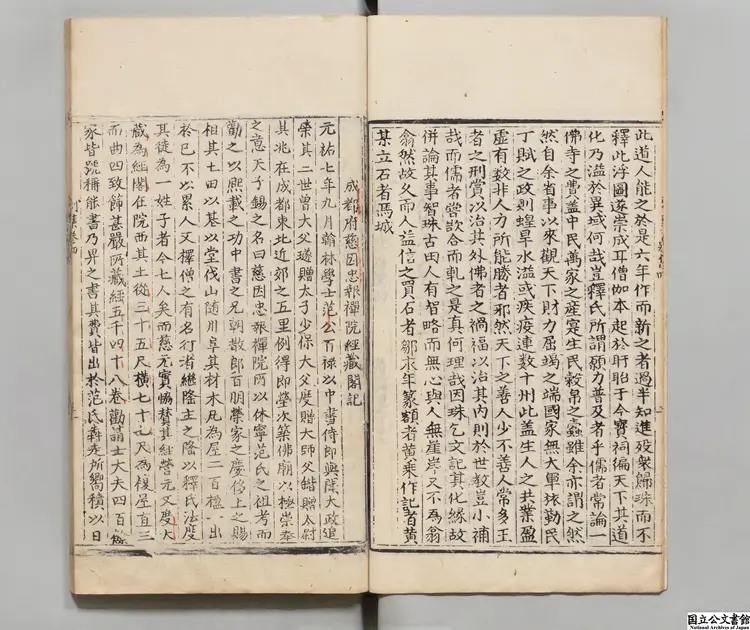 此道人能之於是六年作而新之者過半知進歿衆歸珠而不
釋此浮圖遂崇成耳僧伽本起於盱眙于今寶祠徧天下其道
化乃溢於異域何哉豈釋氏所謂願力普及者乎儒者常論一
佛寺之費蓋中民萬家之産寔生民穀帛之蠹雖余亦謂之然
然自余省事以來觀天下財力屈竭之端國家無大軍旅勤民
丁賦之政則蝗旱水溢或疾疫連數十州此蓋生人之共業盈
虚有數非人力所能勝者邪然天下之善人少不善人常多王
者之刑賞以治其外佛者之禍福以治其内則於世教豈小補
哉而儒者嘗欲合而軋之是真何理哉因珠乞文記其化緣故
併論其事智珠古田人有智略而無心與人無崖岸又不為翕
翕然故久而人益信之買石者鄒永年篆額者黄乘作記者黄
某立石者馬城
成都府慈因忠報禪院經藏閣記
元祐七年九月翰林學士范公百禄以中書侍郎與聞大政追
榮其三世曾大父遂贈太子少保大父度贈太師父鍇贈太尉
其兆在成都東北近郊之五里例得即塋次築佛廟以極崇奉
之意天子錫之名曰慈因忠報禪院所以休寧范氏之祖考而
勸之以熙載之功中書之兄朝散郎百朋榮家之慶侈上之賜
相其土田以基以堂伐山隨川阜其材木凡為屋二百楹一出
於己不以累人又擇僧之有名行者繼隆主之隆以釋氏法度
其徒為一姓子者今七人矣而慈元實協賛其經營元又度大
藏為經閣在院西其土從三十五尺横七十七尺為複屋直三
而曲四致飾甚嚴所藏經五千四十八卷勸請士大夫四百餘
家皆號稱能書乃畀之書其費皆出於范氏犇走所嚮積以日
国立公文書館
National Archives of Japan